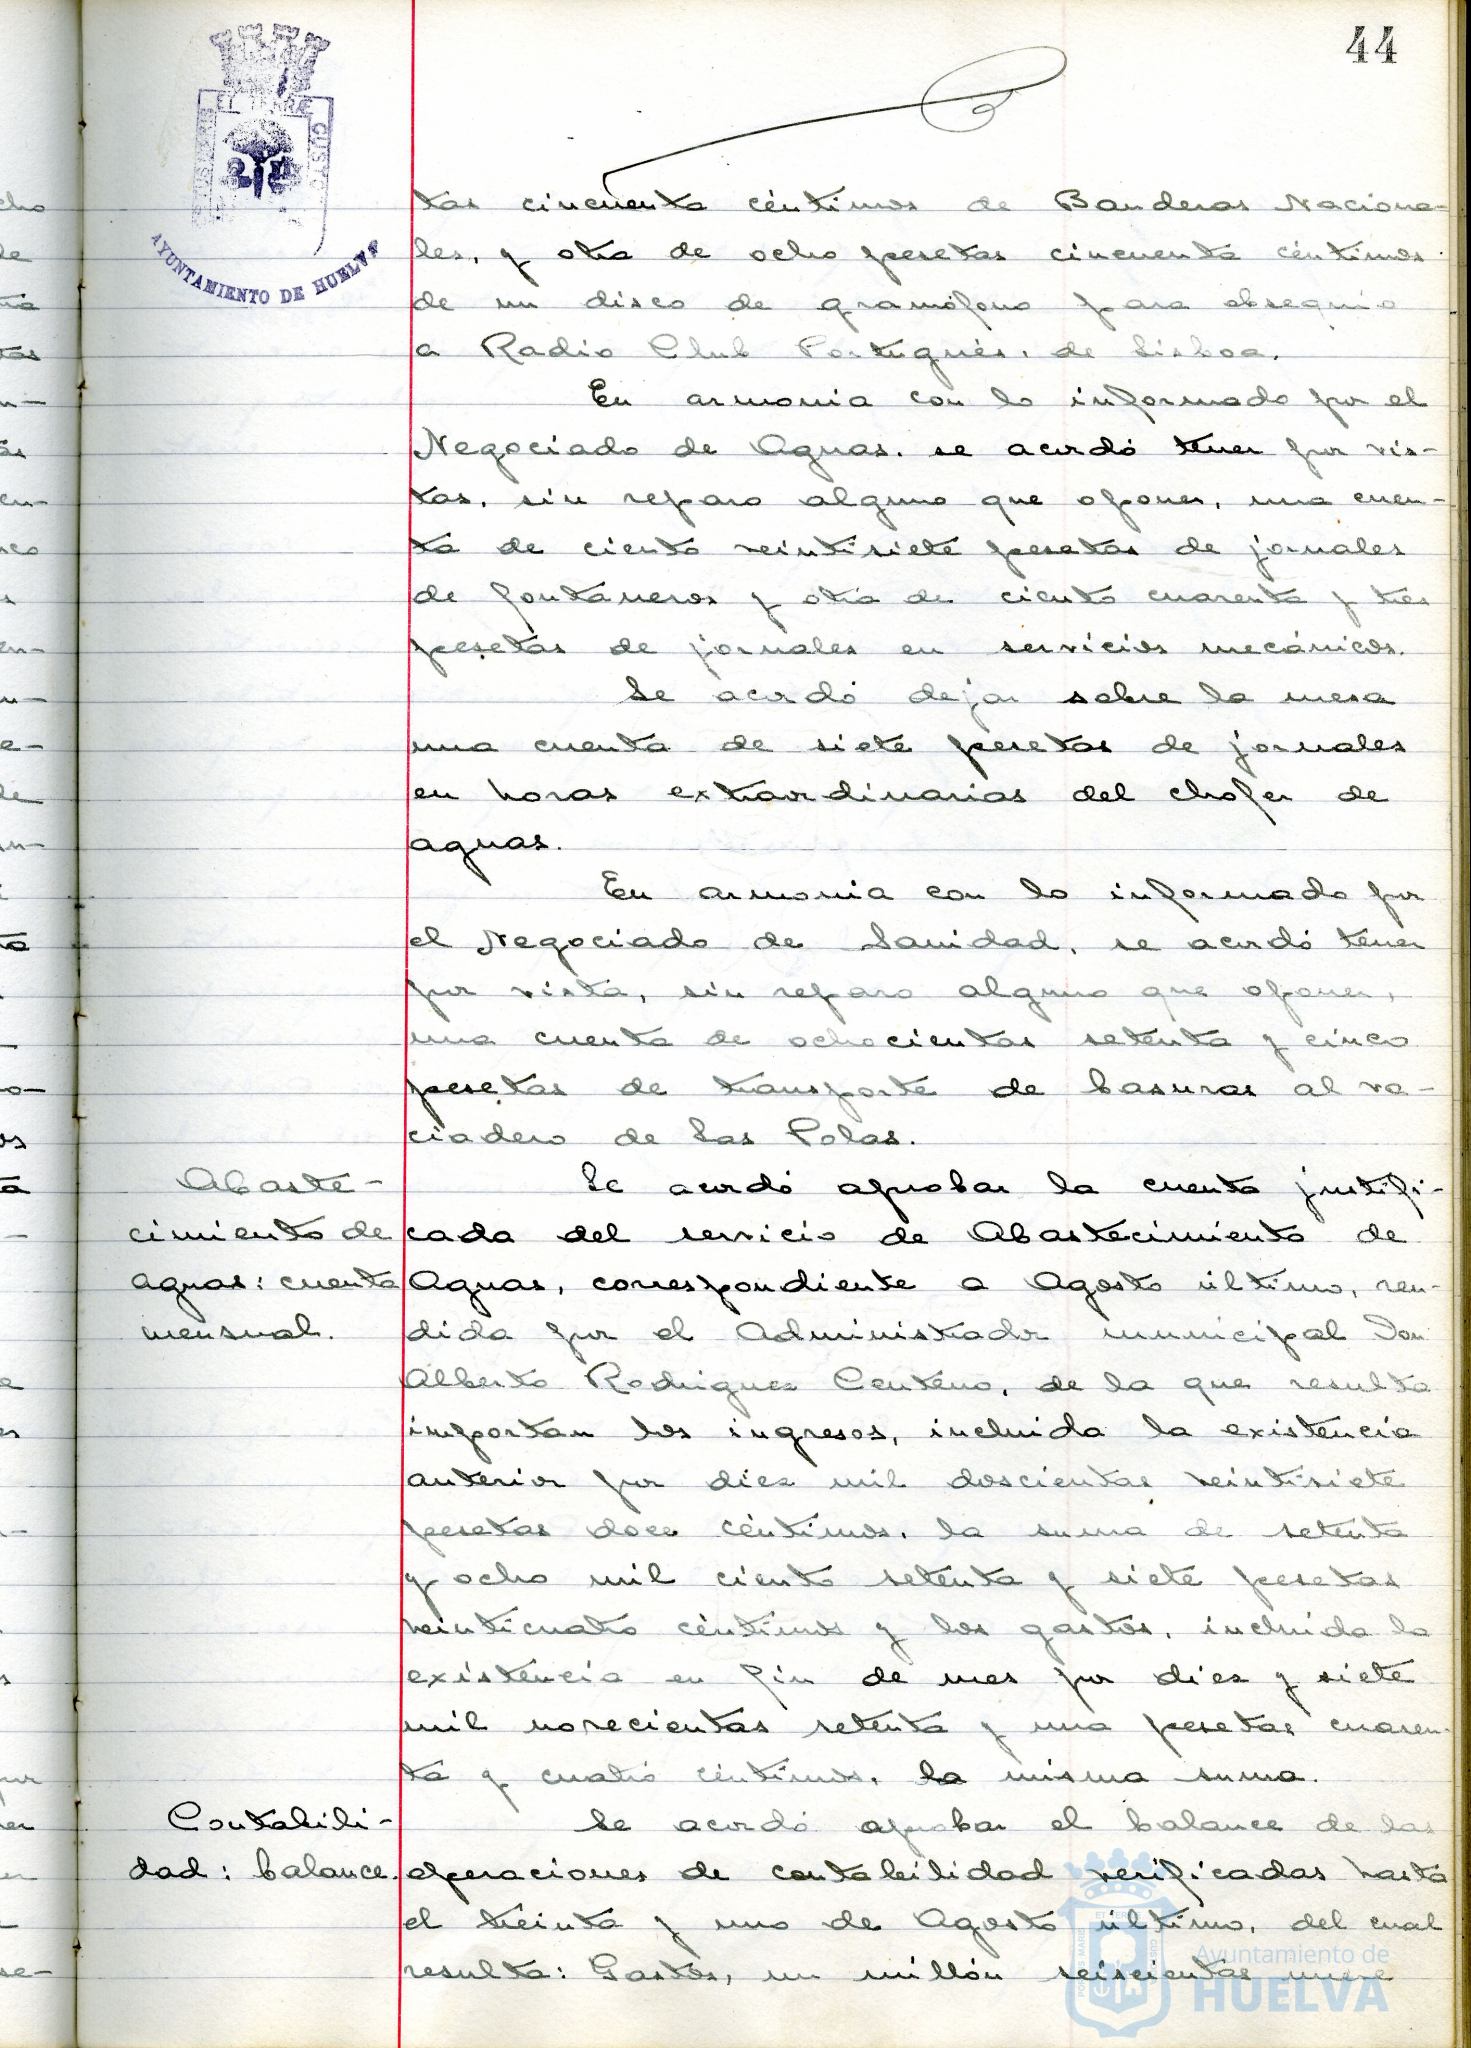 44
ET TERRÆ
CUSTO
AYUNTAMIENTO DE HUELVA
tas cincuenta céntimos de Banderas Naciona-
les, y otra de ocho pesetas cincuenta céntimos
de un disco de gramófono para obsequio
a Radio Club Portugués, de Lisboa.
En armonia con lo informado por el
Negociado de Aguas, se acordó tener por vis-
tas, sin reparo alguno que oponer, una cuen-
ta de ciento veintisiete pesetas de jornales
de fontaneros y otra de ciento cuarenta y tres
pesetas de jornales en servicios mecánicos.
Se acordó dejar sobre la mesa
una cuenta de siete pesetas de jornales
en horas extraordinarias del chofer de
aguas.
En armonia con lo informado por
el Negociado de Sanidad, se acordó tener
por vista, sin reparo alguno que oponer,
una cuenta de ochocientas setenta y cinco
pesetas de transporte de basuras al va-
ciadero de Las Polas.
Abaste-
cimiento de
aguas: cuenta
mensual.
Se acordó aprobar la cuenta justifi-
cada del servicio de Abastecimiento de
Aguas, correspondiente a Agosto último, ren-
dida por el Administrador municipal Don
Alberto Rodriguez Centeno, de la que resulta
importan los ingresos, incluida la existencia
anterior por diez mil doscientas veintisiete
pesetas doce céntimos, la suma de setenta
y ocho mil ciento setenta y siete pesetas
veinticuatro céntimos y los gastos, incluida la
existencia en fin de mes por diez y siete
mil novecientas setenta y una pesetas cuaren-
ta y cuatro céntimos, la misma suma.
Contabili-
dad: balance.
Se acordó aprobar el balance de las
operaciones de contabilidad verificadas hasta
el treinta y uno de Agosto último, del cual
resulta: Gastos, un millón seiscientas nueve
Ayuntamiento de
HUELVA